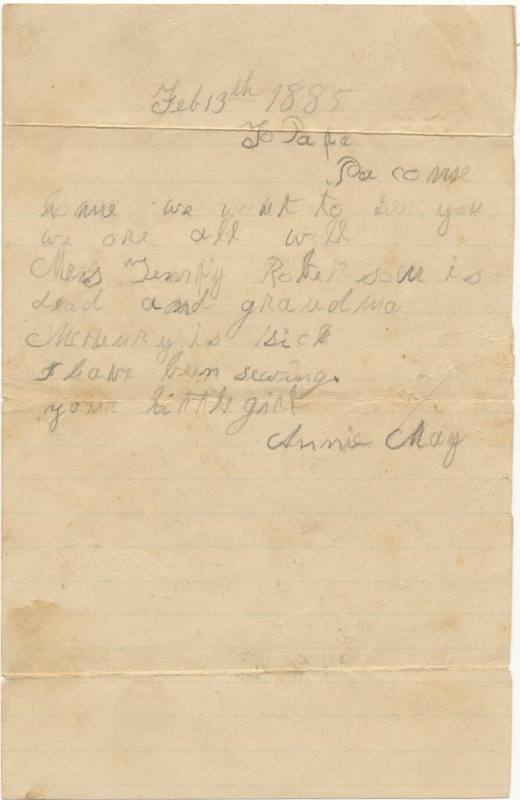 Feb 13th 1885
To Papa
Pa come
home we want to see you
we are all well
Mrs Roberson is
dead and grandma
McHenry is sick
I have been sewing.
your little girl
Annie May